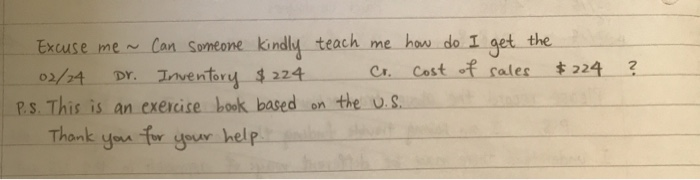 Excuse me ~ Can someone kindly teach me how do I get the
02/24 Dr. Inventory $224 Cr. Cost of sales $224 ?
P.S. This is an exercise book based on the U.S.
Thank you for your help.